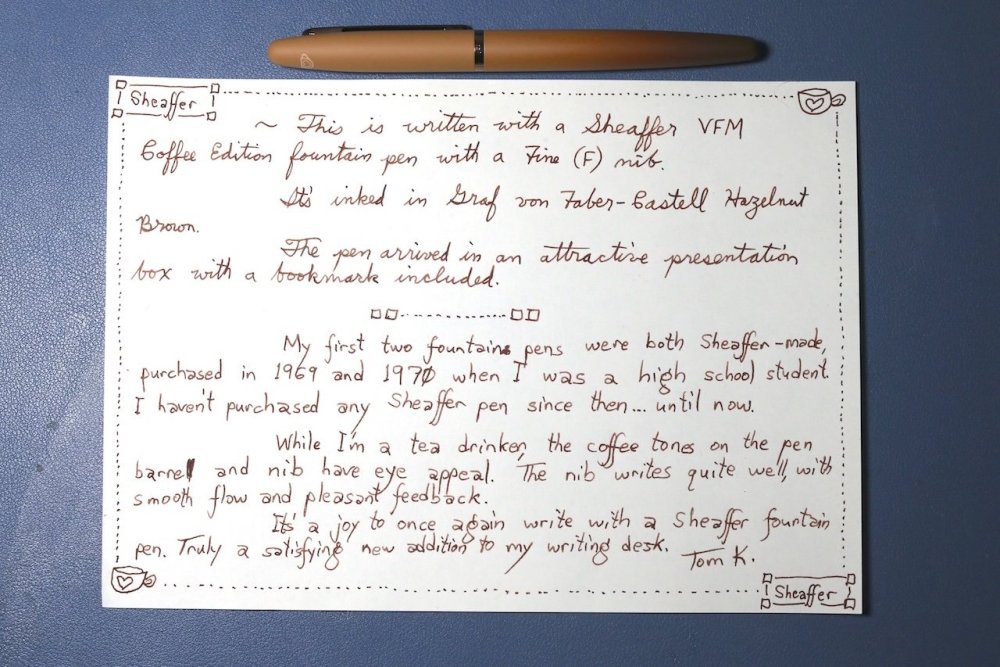 Sheaffer
~ This is written with a Sheaffer VFM
Coffee Edition fountain pen with a Fine (F) nib.
It's inked in Graf von Faber-Castell Hazelnut
Brown.
The pen arrived in an attractive presentation
box with a bookmark included.
My first two fountains pens were both Sheaffer-made,
purchased in 1969 and 1970 when I was a high school student.
I haven't purchased any Sheaffer pen since then... until now.
While I'm a tea drinker, the coffee tones on the pen
barrel and nib have eye appeal. The nib writes quite well, with
smooth flow and pleasant feedback.
It's a joy to once again write with a Sheaffer fountain
pen. Truly a satisfying new addition to my writing desk.
Tom K.
Sheaffer